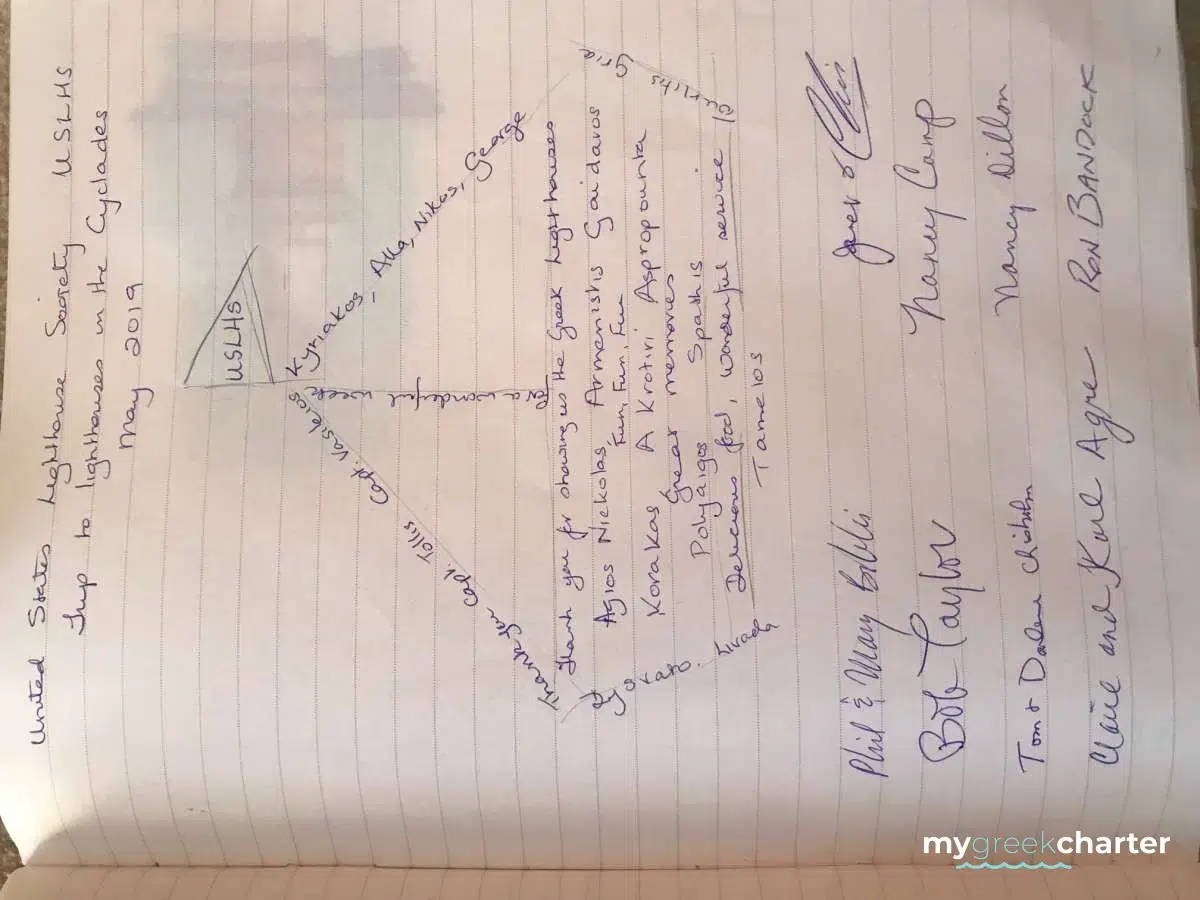 United States Lighthouse Society USLHS
Trip to lighthouses in the Cyclades
May 2019
USLHS
Kyriakos - Aka, Nikos, George
Thank you Capt. Tollis Capt. Vasileios
a wonderful week
Thank you for showing us the Greek lighthouses
Agios Nickolas, Armenistis Gaidaros
Fun, Fun, Fun
Korakas A Krotiri Aspropounta
Great memories
Polyaigos Spathis
Delicious food, wonderful service
Tamelos
Goran
Phil & Mary Bibli
Bob Taylor
Nancy Camp
Tom & Darlene Chisholm
Nancy Dillon
Claire and Karl Agre
Ron BANDOCK
mygreekcharter